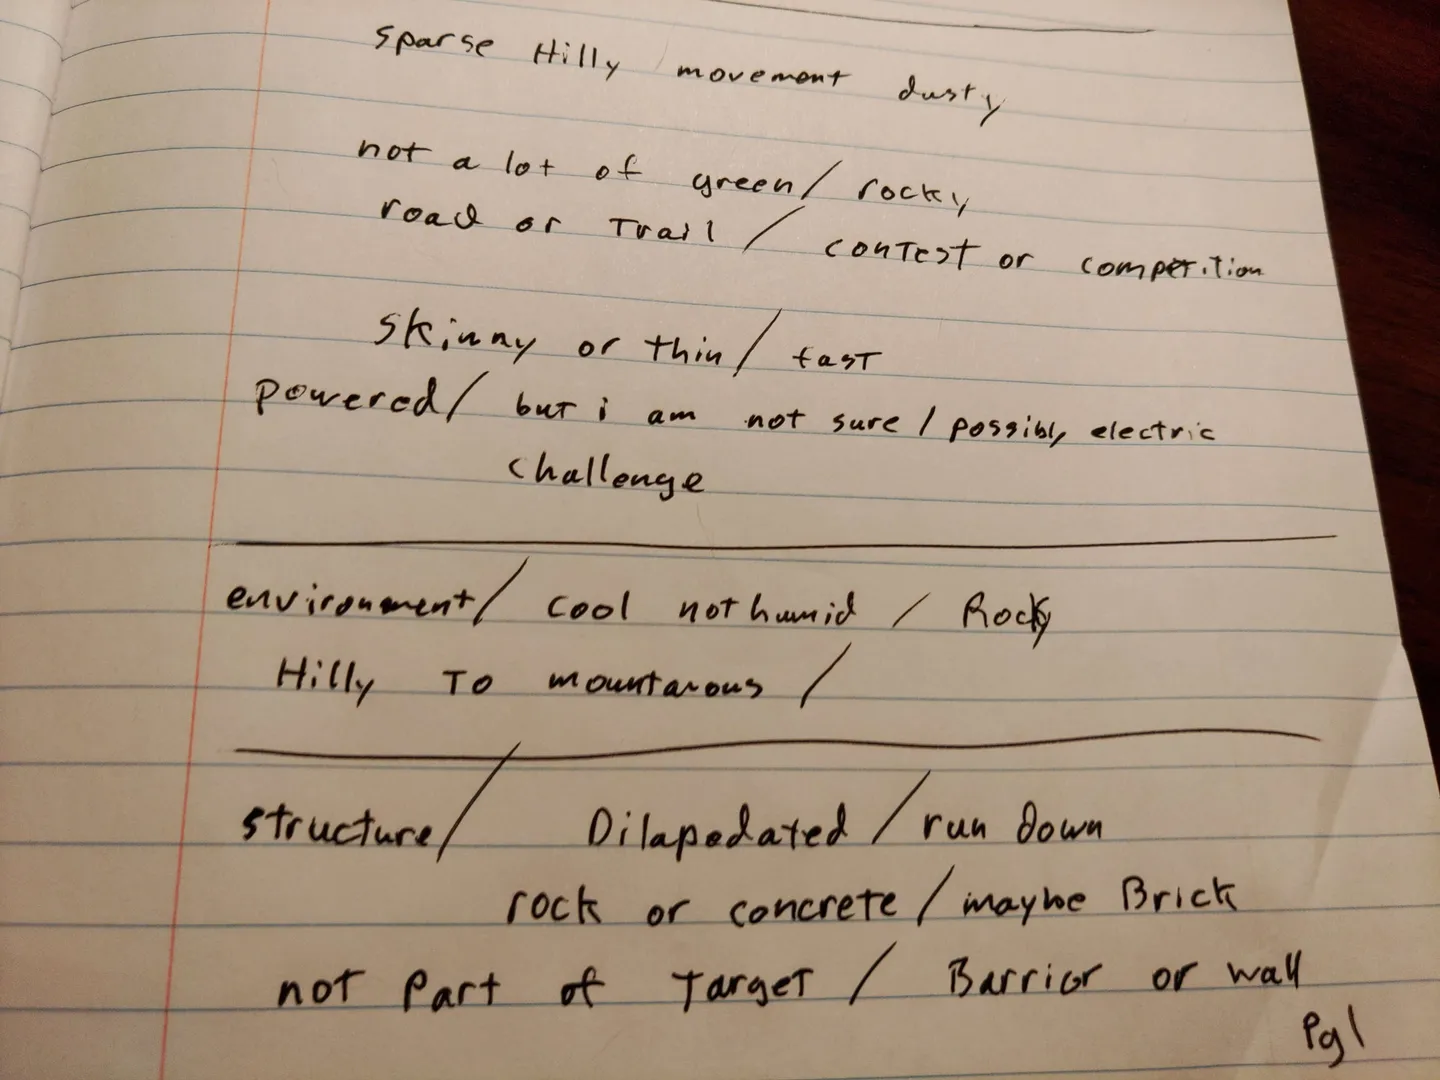 sparse Hilly / movement dusty
not a lot of green / rocky
road or Trail / contest or competition
skinny or thin / fast
powered / but i am not sure / possibly electric
challenge
environment / cool not humid / Rocky
Hilly To mountarous /
structure / Dilapedated / run down
rock or concrete / maybe Brick
not part of Target / Barrior or wall
Pg1